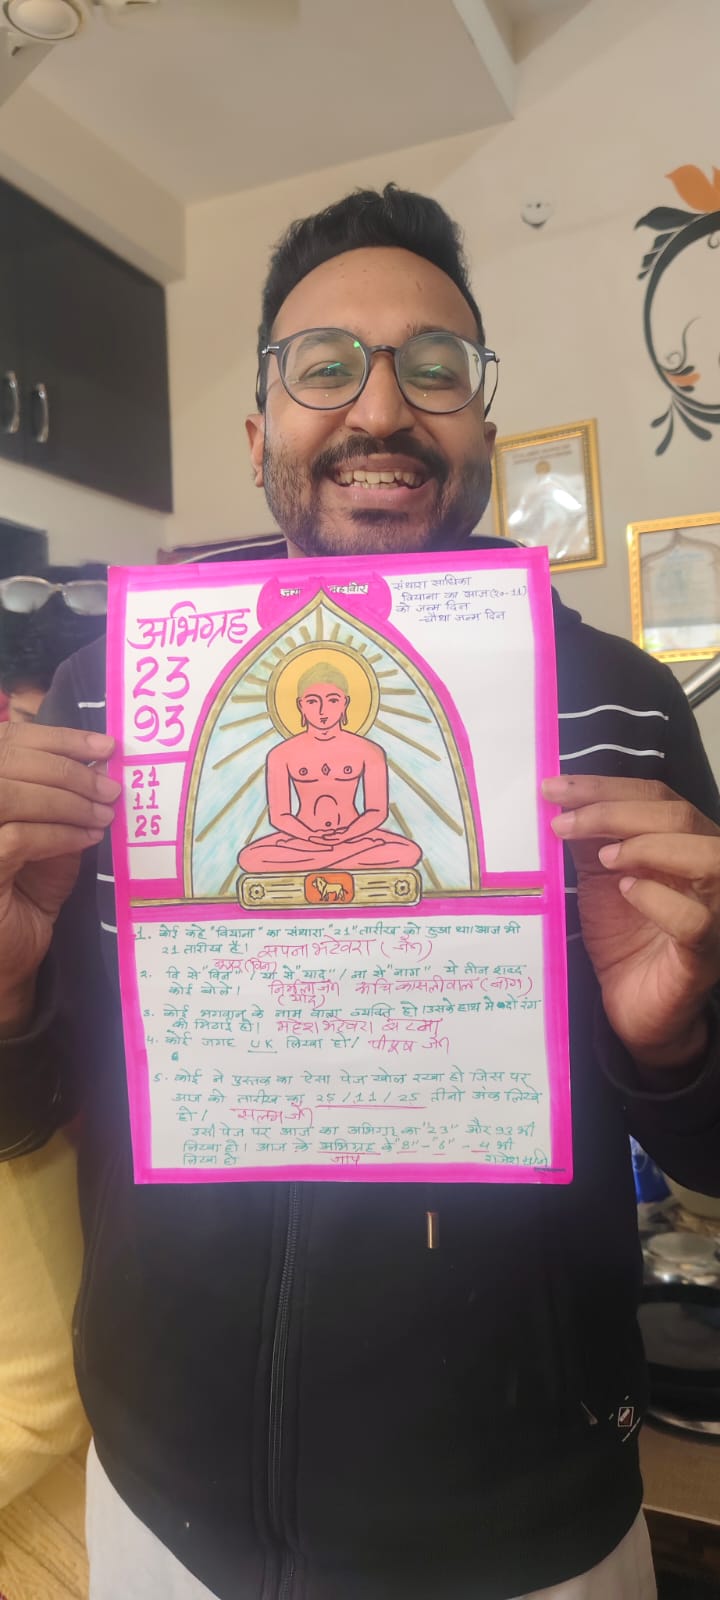 अभिग्रह
23
93
21
11
25
महावीर
संथारा साधिका
वियाना का आज (20-11)
को जन्म दिन
-चौथा जन्म दिन
1. कोई कहे "वियाना" का संथारा "21" तारीख को हुआ था। आज भी
21 तारीख है। सपना भटेवरा (जैन)
2. वि से "विन" / या से "याद" / ना से "नाग" ये तीन शब्द
कोई बोले। निर्मला जैन (याद)
3. कोई भगवान के नाम वाला व्यक्ति हो। उसके हाथ मे दो रंग
की मिठाई हो। महेश भटेवरा
4. कोई जगह UK लिखा हो / पीयूष जैन
5. कोई ने पुस्तक का ऐसा पेज खोल रखा हो जिस पर
आज की तारीख का 25/11/25 तीनो अंक लिखे
हो /
उसी पेज पर आज का अभिग्रह का "23" और 93 भी
लिखा हो। आज के अभिग्रह के "8"-"6"-4 भी
लिखा हो
राजेश मुनि